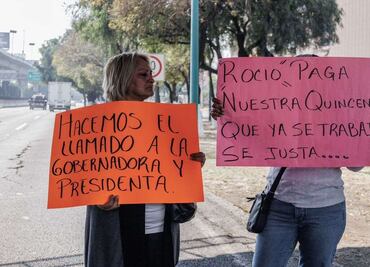 HACEMOS EL
LLAMADO A LA
GOBERNADORA Y
PRESIDENTA.
ROCIO" PAGA
NUESTRA QUINCEN
QUE YA SE TRABA
SE JUSTA.....